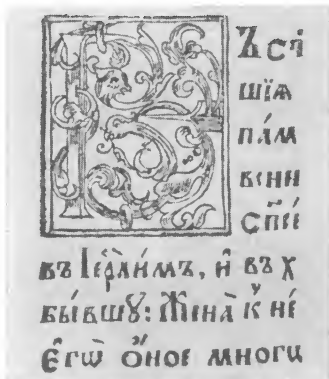 Въ сч҃і
шїѧ
па́м
венн
сп҃е́
въ Іерⷭ҇ли́мъ, и҆ въ х
бы́вшꙋ: Жена̀ к̾ не́
є҆гѡ̀ ѻ҆́ное многц